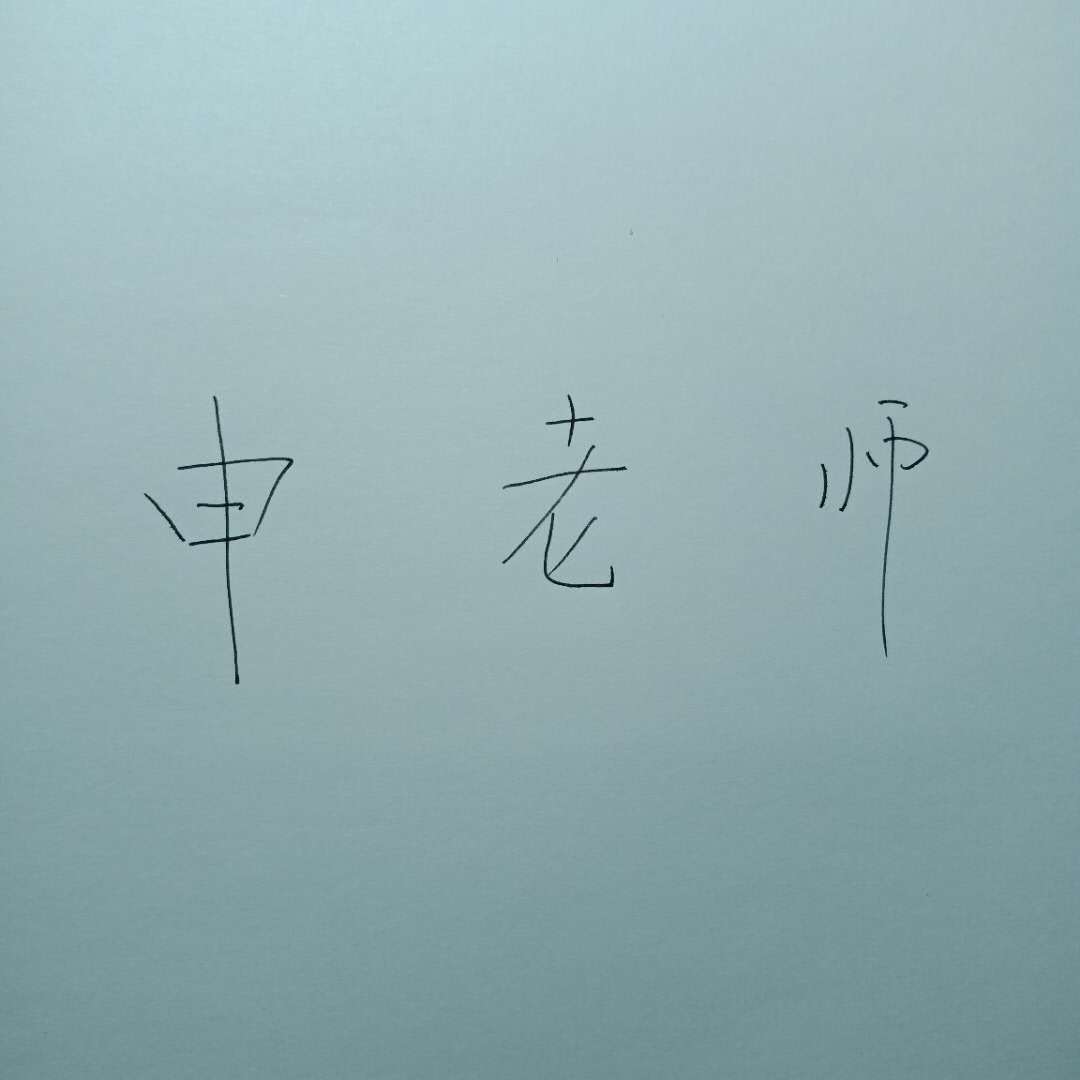 申老师